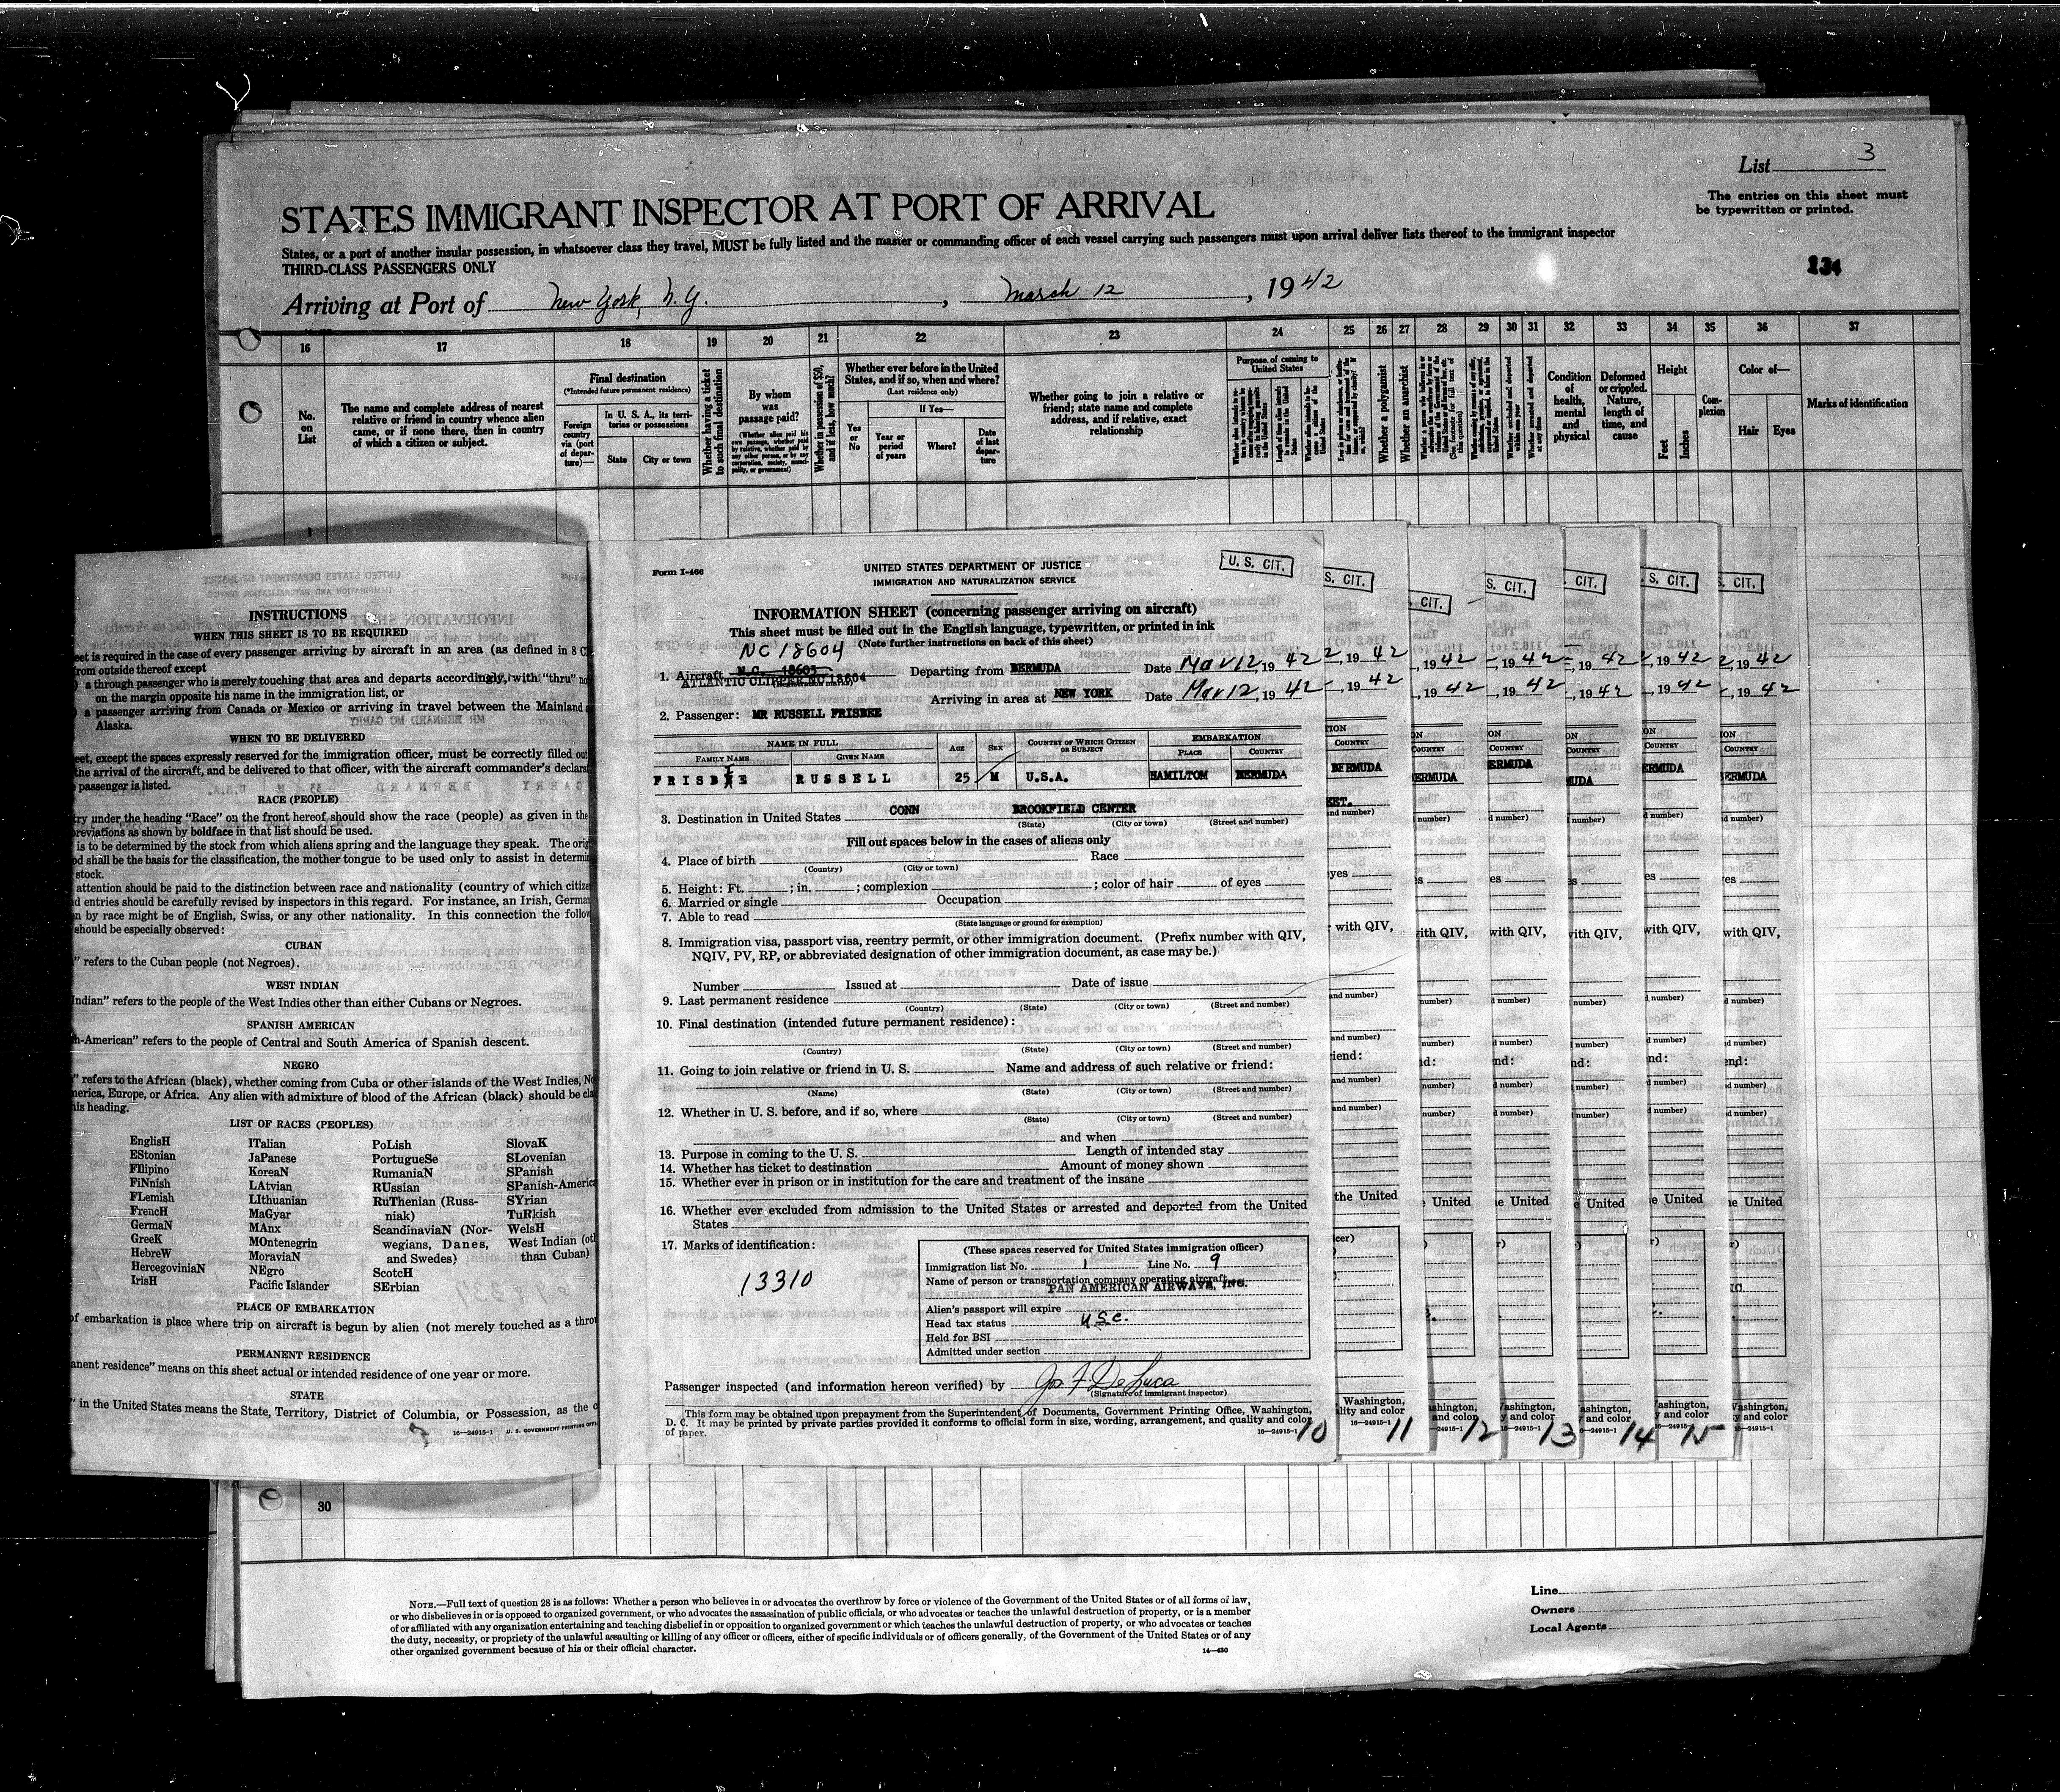 List 3
The entries on this sheet must
be typewritten or printed.
STATES IMMIGRANT INSPECTOR AT PORT OF ARRIVAL
States, or a port of another insular possession, in whatsoever class they travel, MUST be fully listed and the master or commanding officer of each vessel carrying such passengers must upon arrival deliver lists thereof to the immigrant inspector
THIRD-CLASS PASSENGERS ONLY
134
Arriving at Port of New York, N.Y. , March 12 , 1942
16 17 18 19 20 21 22 23 24 25 26 27 28 29 30 31 32 33 34 35 36 37
No.
on
List
The name and complete address of nearest
relative or friend in country whence alien
came, or if none there, then in country
of which a citizen or subject.
Final destination
(*Intended future permanent residence)
Foreign
country
via (port
of depar-
ture)—
In U. S. A., its terri-
tories or possessions
State
City or town
Whether having a ticket
to such final destination
By whom
was
passage paid?
Whether in possession of $50,
and if less, how much?
Whether ever before in the United
States, and if so, when and where?
(Last residence only)
Yes
or
No
If Yes—
Year or
period
of years
Where?
Date
of last
depar-
ture
Whether going to join a relative or
friend; state name and complete
address, and if relative, exact
relationship
Purpose of coming to
United States
Whether a polygamist
Whether an anarchist
Condition
of
health,
mental
and
physical
Deformed
or crippled.
Nature,
length of
time, and
cause
Height
Feet
Inches
Com-
plexion
Color of—
Hair
Eyes
Marks of identification
INSTRUCTIONS
WHEN THIS SHEET IS TO BE REQUIRED
eet is required in the case of every passenger arriving by aircraft in an area (as defined in 8 C
from outside thereof except
) a through passenger who is merely touching that area and departs accordingly, with "thru" no
on the margin opposite his name in the immigration list, or
) a passenger arriving from Canada or Mexico or arriving in travel between the Mainland
Alaska.
WHEN TO BE DELIVERED
eet, except the spaces expressly reserved for the immigration officer, must be correctly filled out
the arrival of the aircraft, and be delivered to that officer, with the aircraft commander's declara
passenger is listed.
RACE (PEOPLE)
try under the heading "Race" on the front hereof should show the race (people) as given in the
breviations as shown by boldface in that list should be used.
is to be determined by the stock from which aliens spring and the language they speak. The orig
od shall be the basis for the classification, the mother tongue to be used only to assist in determi
stock.
attention should be paid to the distinction between race and nationality (country of which citize
d entries should be carefully revised by inspectors in this regard. For instance, an Irish, Germa
n by race might be of English, Swiss, or any other nationality. In this connection the follow
should be especially observed:
CUBAN
" refers to the Cuban people (not Negroes).
WEST INDIAN
Indian" refers to the people of the West Indies other than either Cubans or Negroes.
SPANISH AMERICAN
h-American" refers to the people of Central and South America of Spanish descent.
NEGRO
" refers to the African (black), whether coming from Cuba or other islands of the West Indies, No
merica, Europe, or Africa. Any alien with admixture of blood of the African (black) should be cla
his heading.
LIST OF RACES (PEOPLES)
EnglisH
EStonian
FIlipino
FiNnish
FLemish
FrencH
GermaN
GreeK
HebreW
HercegoviniaN
IrisH
ITalian
JaPanese
KoreaN
LAtvian
LIthuanian
MaGyar
MAnx
MOntenegrin
MoraviaN
NEgro
Pacific Islander
PoLish
PortugueSe
RumaniaN
RUssian
RuThenian (Russ-
niak)
ScandinaviaN (Nor-
wegians, Danes,
and Swedes)
ScotcH
SErbian
SlovaK
SLovenian
SPanish
SPanish-America
SYrian
TuRkish
WelsH
West Indian (oth
than Cuban)
PLACE OF EMBARKATION
of embarkation is place where trip on aircraft is begun by alien (not merely touched as a throu
PERMANENT RESIDENCE
anent residence" means on this sheet actual or intended residence of one year or more.
STATE
" in the United States means the State, Territory, District of Columbia, or Possession, as the c
16—24915-1 U. S. GOVERNMENT PRINTING OFFI
Form I-466
U. S. CIT.
UNITED STATES DEPARTMENT OF JUSTICE
IMMIGRATION AND NATURALIZATION SERVICE
INFORMATION SHEET (concerning passenger arriving on aircraft)
This sheet must be filled out in the English language, typewritten, or printed in ink
(Note further instructions on back of this sheet)
NC 18604
1. Aircraft N.C. 18603 Departing from BERMUDA Date Mar 12, 1942
ATLANTIC CLIPPER NC 18604
Arriving in area at NEW YORK Date Mar 12, 1942
2. Passenger: MR RUSSELL FRISBEE
NAME IN FULL
FAMILY NAME
GIVEN NAME
AGE
SEX
COUNTRY OF WHICH CITIZEN
OR SUBJECT
EMBARKATION
PLACE
COUNTRY
FRISBIE RUSSELL 25 M U.S.A. HAMILTON BERMUDA
3. Destination in United States CONN BROOKFIELD CENTER
(State) (City or town) (Street and number)
Fill out spaces below in the cases of aliens only
4. Place of birth Race
(Country) (City or town)
5. Height: Ft. ; in. ; complexion ; color of hair of eyes
6. Married or single Occupation
7. Able to read
(State language or ground for exemption)
8. Immigration visa, passport visa, reentry permit, or other immigration document. (Prefix number with QIV,
NQIV, PV, RP, or abbreviated designation of other immigration document, as case may be.)
Number Issued at Date of issue
9. Last permanent residence
(Country) (State) (City or town) (Street and number)
10. Final destination (intended future permanent residence):
(Country) (State) (City or town) (Street and number)
11. Going to join relative or friend in U. S. Name and address of such relative or friend:
(Name) (State) (City or town) (Street and number)
12. Whether in U. S. before, and if so, where
(State) (City or town) (Street and number)
and when
13. Purpose in coming to the U. S. Length of intended stay
14. Whether has ticket to destination Amount of money shown
15. Whether ever in prison or in institution for the care and treatment of the insane
16. Whether ever excluded from admission to the United States or arrested and deported from the United
States
17. Marks of identification:
13310
(These spaces reserved for United States immigration officer)
Immigration list No. 1 Line No. 9
Name of person or transportation company operating aircraft
PAN AMERICAN AIRWAYS, INC.
Alien's passport will expire
Head tax status USC.
Held for BSI
Admitted under section
Passenger inspected (and information hereon verified) by Jos F. De Luca
(Signature of immigrant inspector)
This form may be obtained upon prepayment from the Superintendent of Documents, Government Printing Office, Washington,
D. C. It may be printed by private parties provided it conforms to official form in size, wording, arrangement, and quality and color
of paper.
16—24915-1
10 11 12 13 14 15
30
NOTE.—Full text of question 28 is as follows: Whether a person who believes in or advocates the overthrow by force or violence of the Government of the United States or of all forms of law,
or who disbelieves in or is opposed to organized government, or who advocates the assassination of public officials, or who advocates or teaches the unlawful destruction of property, or is a member
of or affiliated with any organization entertaining and teaching disbelief in or opposition to organized government or which teaches the unlawful destruction of property, or who advocates or teaches
the duty, necessity, or propriety of the unlawful assaulting or killing of any officer or officers, either of specific individuals or of officers generally, of the Government of the United States or of any
other organized government because of his or their official character.
14—430
Line
Owners
Local Agents